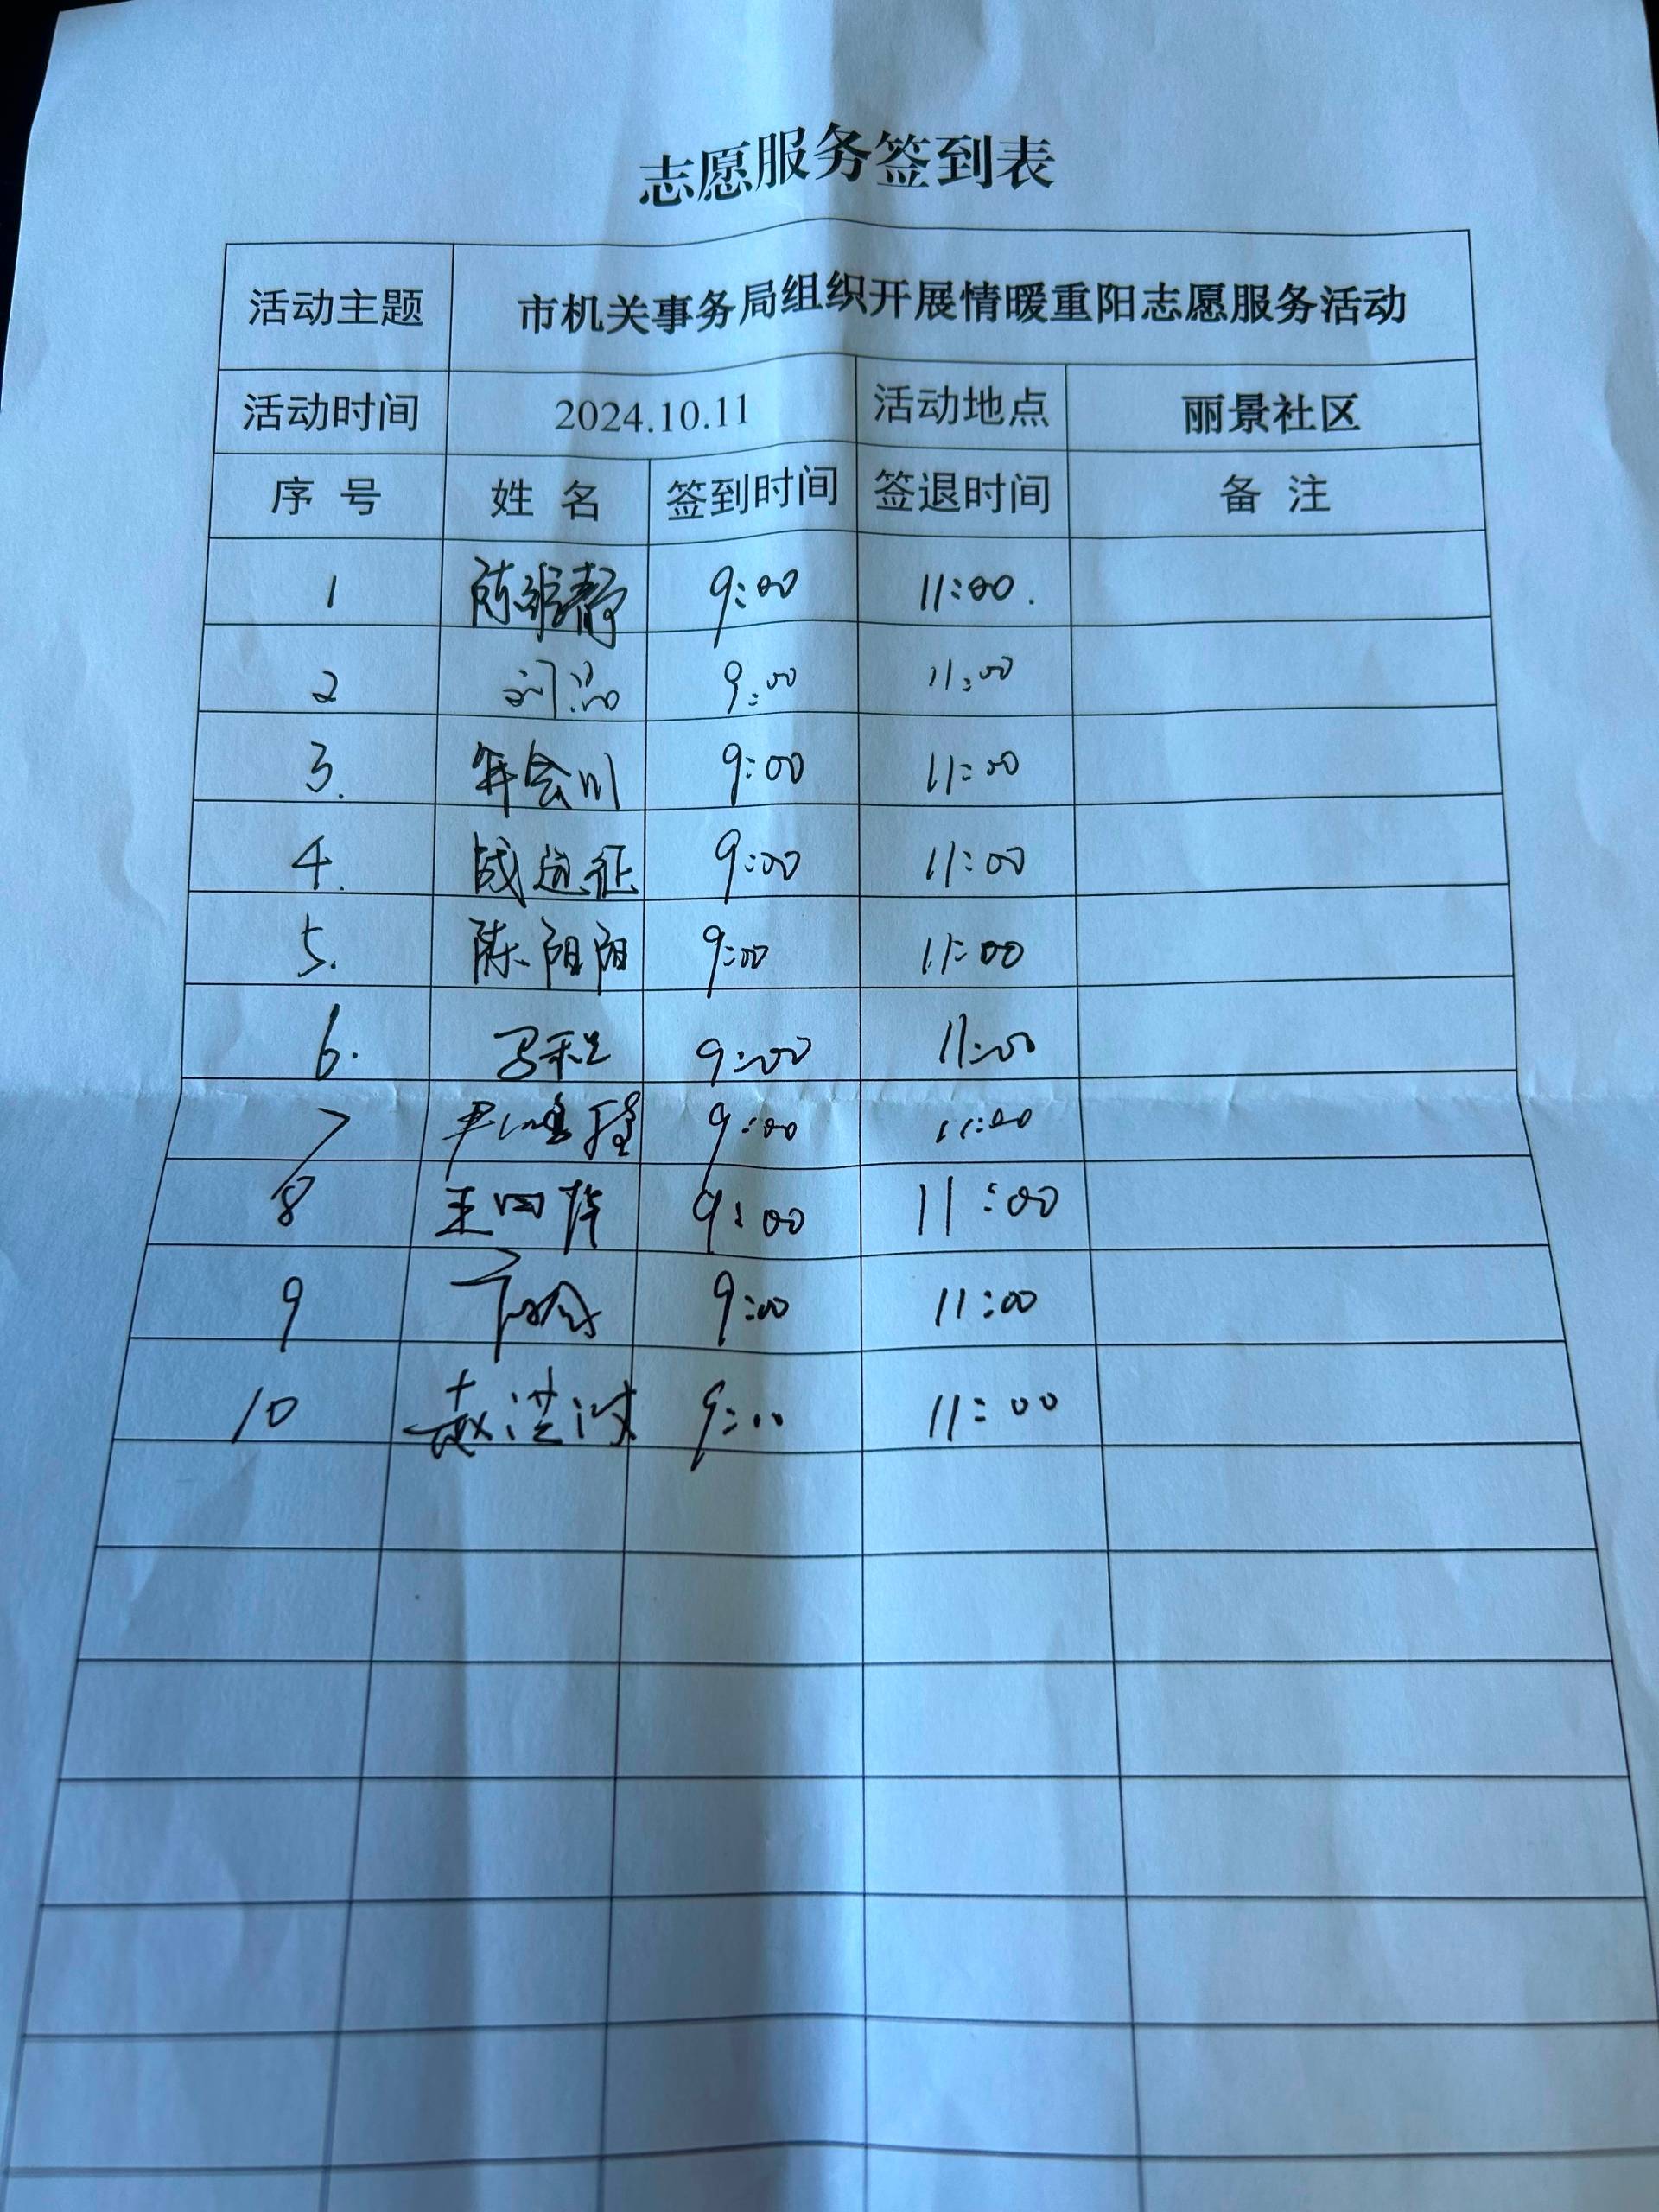 志愿服务签到表
活动主题 市机关事务局组织开展情暖重阳志愿服务活动
活动时间 2024.10.11 活动地点 丽景社区
序号 姓名 签到时间 签退时间 备注
1 陈维静 9:00 11:00.
2 9:00 11:00
3. 年会川 9:00 11:00
4. 战远征 9:00 11:00
5. 陈阳阳 9:00 11:00
6. 9:00 11:00
7 9:00 11:00
8 王 9:00 11:00
9 9:00 11:00
10 赵洪波 9:00 11:00